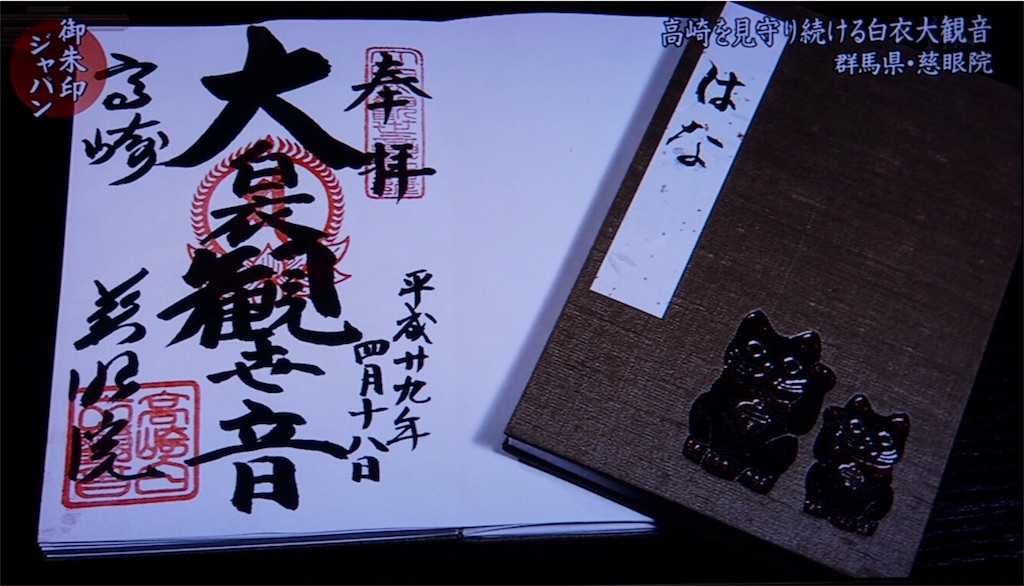 御朱印
ジャパン
高崎を見守り続ける白衣大観音
群馬県・慈眼院
奉拝
平成廿九年
四月十八日
大白衣観世音
高崎
慈眼院
はな